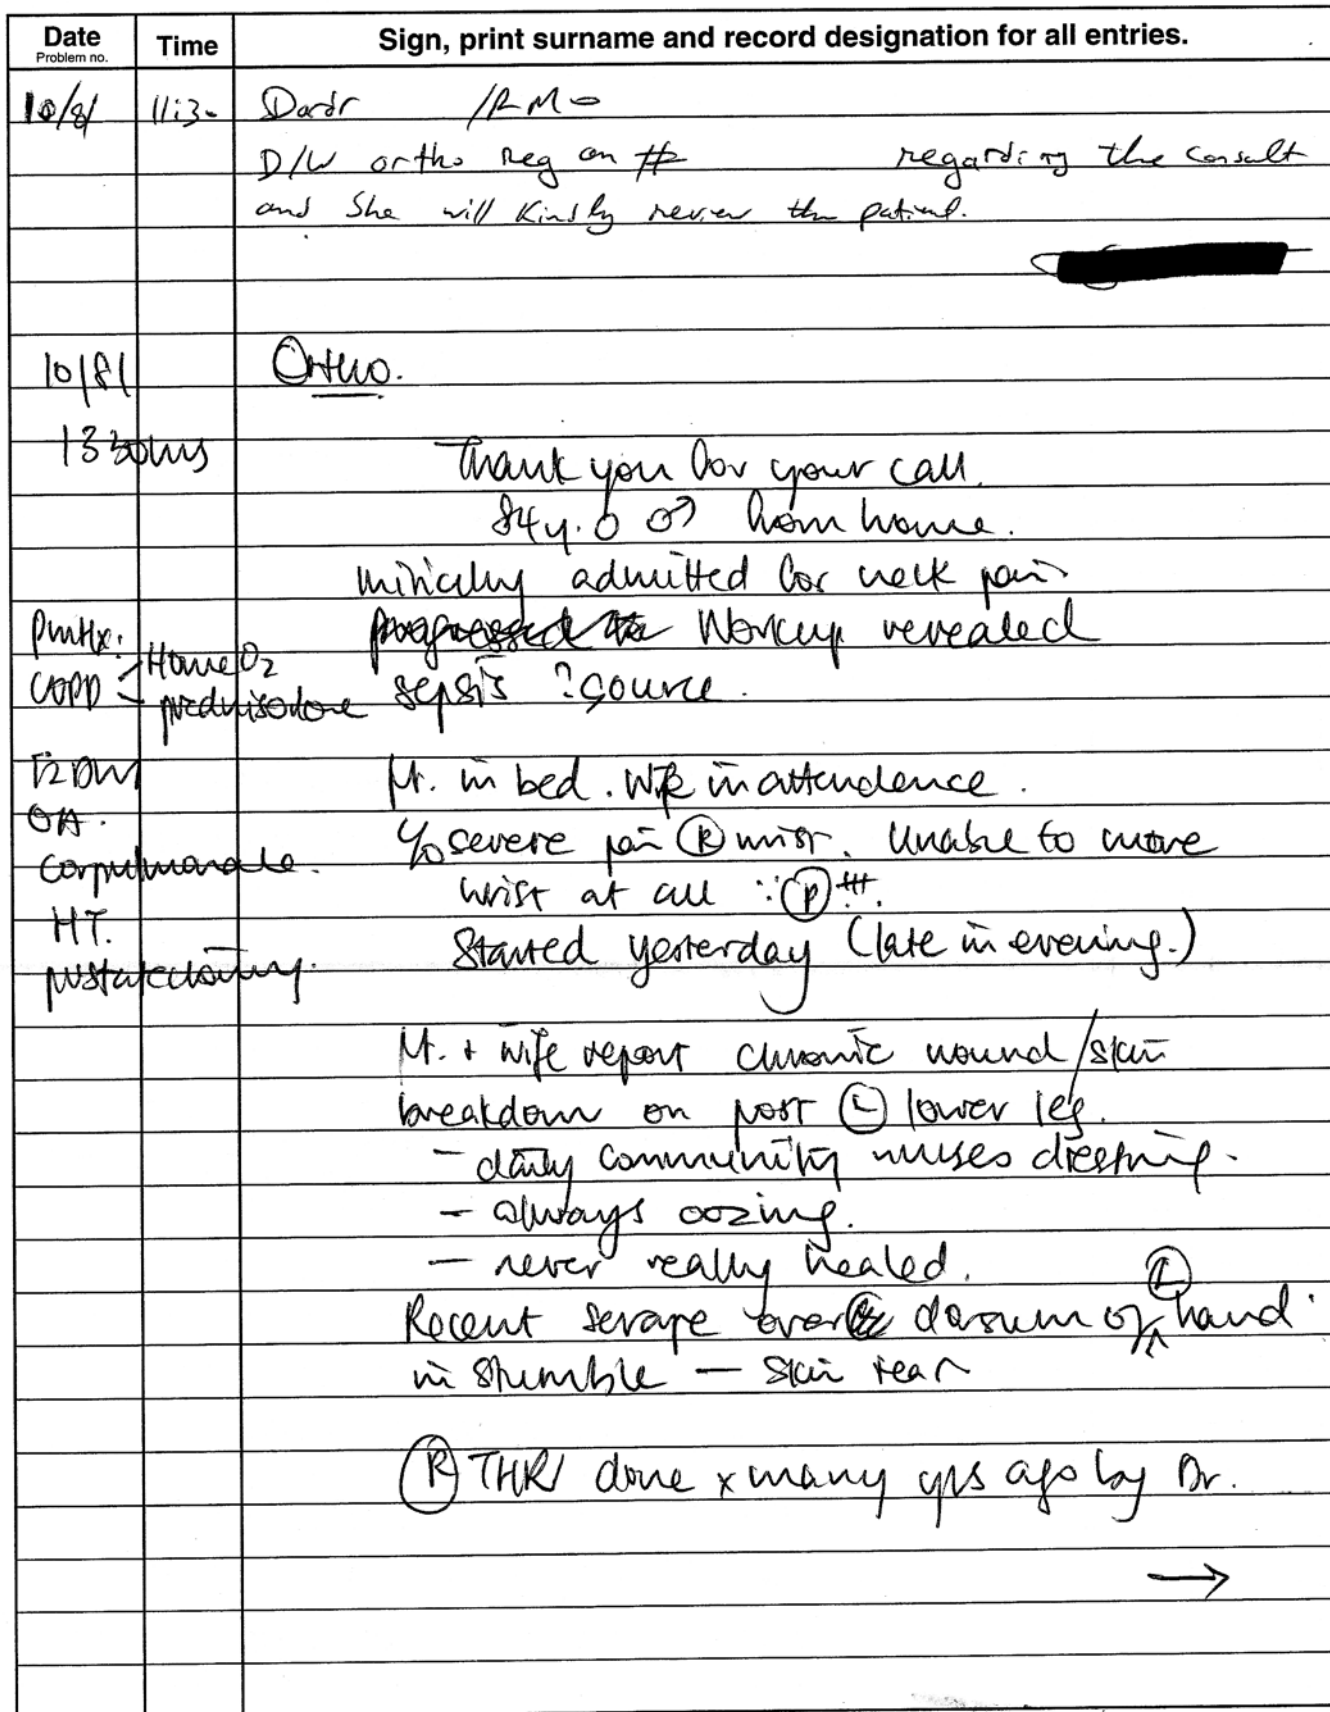 Date Time Sign, print surname and record designation for all entries.
Problem no.
10/8/ 11:30 /RMO
D/W ortho Reg on # regarding the consult
and She will Kindly review the patient.
10/8/ Ortho.
1330hrs
Thank you for your call.
84y.o ♂ from home.
initially admitted for neck pain
PMHx: progressed to Workup revealed
COPD - Home O2
- prednisolone sepsis ?source.
T2DM Pt. in bed. Wife in attendence.
OA. c/o severe pain Ⓡ wrist. Unable to move
Cor pulmonale. wrist at all ∵ Ⓟ +++.
HT. Started yesterday (late in evening.)
prostatectomy.
Pt. + wife report chronic wound/skin
breakdown on post Ⓛ lower leg.
- daily community nurses dressing.
- always oozing.
- never really healed.
Recent scrape over dorsum of Ⓛ hand
in stumble - skin tear
Ⓡ THR done x many yrs ago by Dr.
→